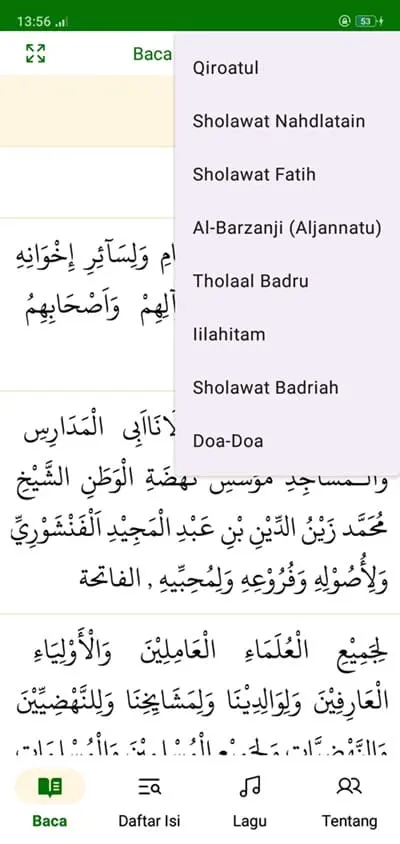 13:56
53
Baca
Qiroatul
Sholawat Nahdlatain
Sholawat Fatih
Al-Barzanji (Aljannatu)
Tholaal Badru
Iilahitam
Sholawat Badriah
Doa-Doa
وَلِسَآئِرِ إِخْوَانِهِ
آلِهِمْ وَاَصْحَابِهِمُ
الْمَدَارِسِ
وَالْمَسَاجِدِ مُؤَسِّسِ نَهْضَةِ الْوَطَنِ الشَّيْخِ
مُحَمَّد زَيْنُ الدِّيْنِ بْنِ عَبْدِ الْمَجِيْدِ اَلْفَنْشُوْرِيِّ
وَلِأُصُوْلِهِ وَفُرُوْعِهِ وَلِمُحِبِّيهِ , الفاتحة
لِجَمِيْعِ الْعُلَمَاءِ الْعَامِلِيْنَ وَالْأَوْلِيَاءِ
الْعَارِفِيْنَ وَلِوَالِدِيْنَا وَلِمَشَايِخِنَا وَلِلنَّهْضِيِّيْنَ
وَالنَّهْضِيَّاتِ وَلِجَمِيْعِ الْمُسْلِمِيْنَ وَالْمُسْلِمَاتِ
Baca
Daftar Isi
Lagu
Tentang